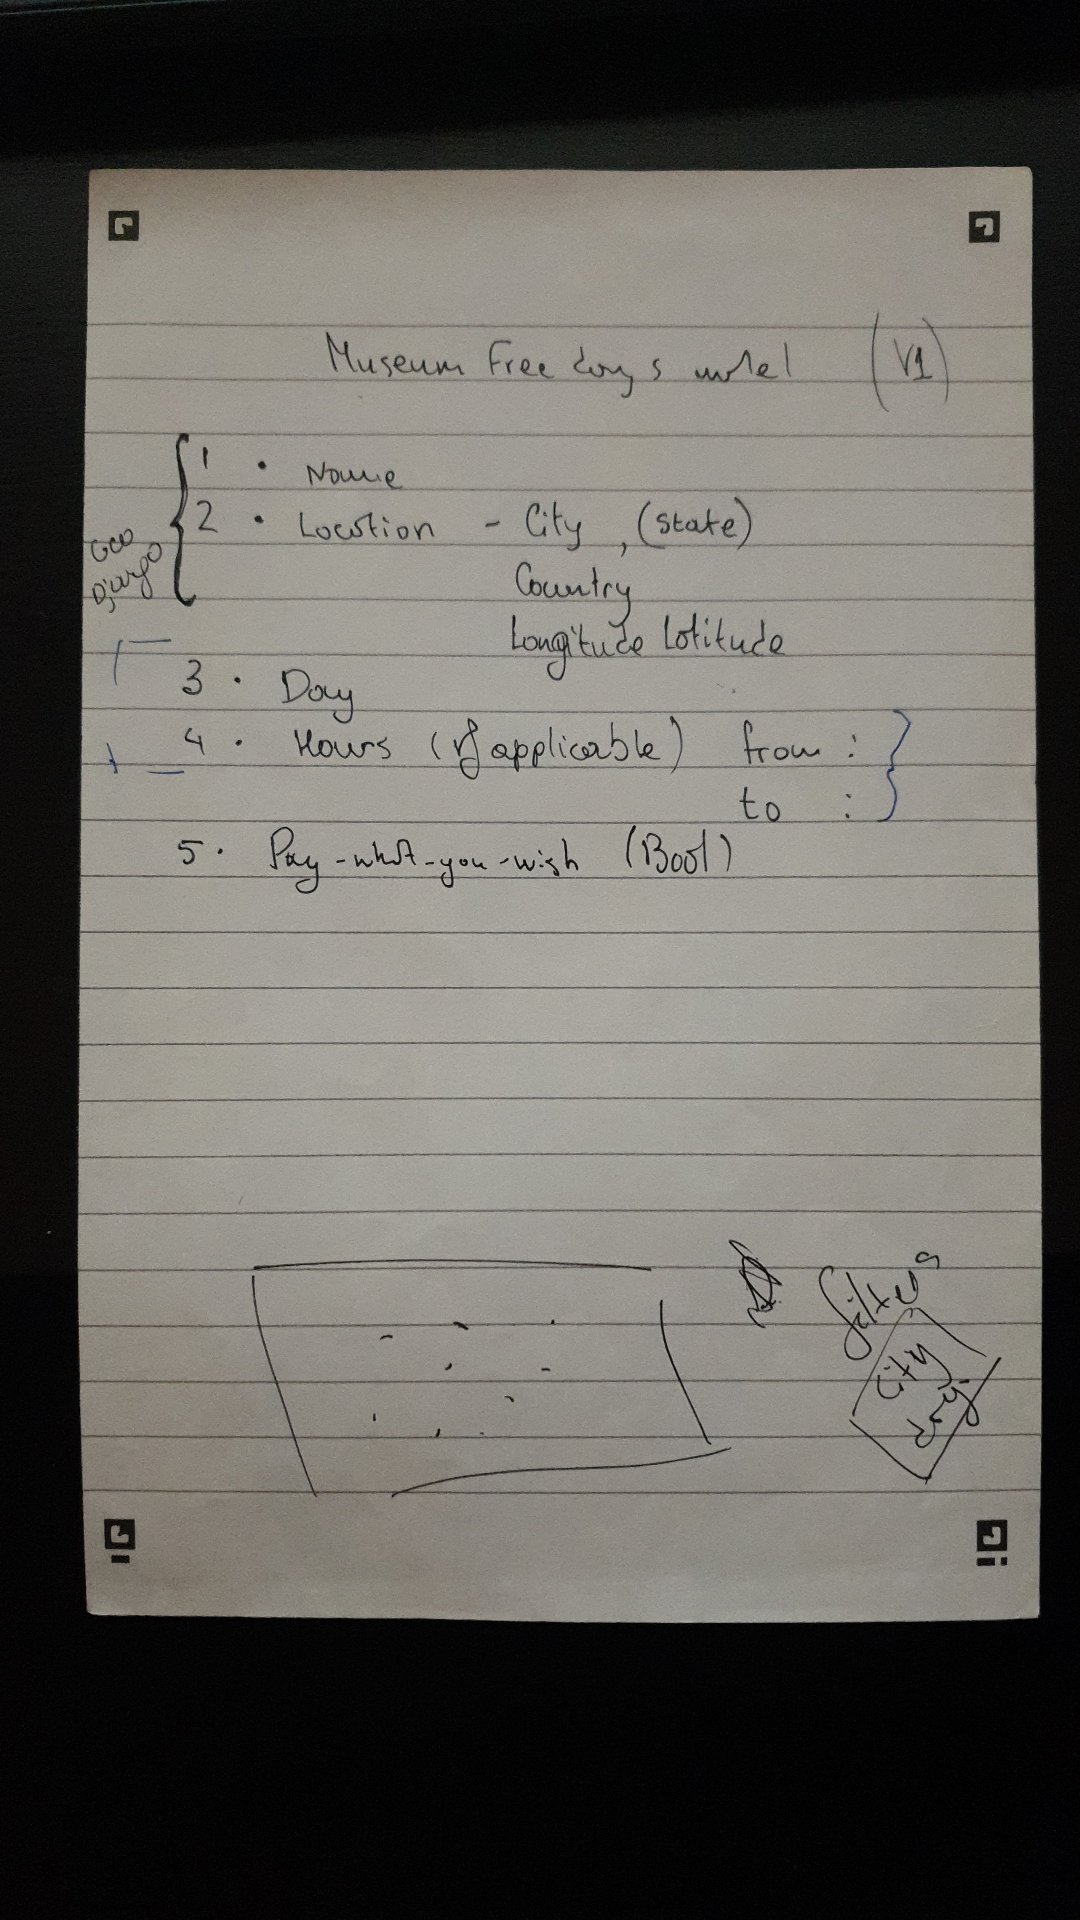 Museum Free days model (V1)
1 • Name
2 • Location - City, (state)
Geo
Django
Country
Longitude Latitude
3 • Day
4 • Hours (if applicable) from :
to :
5 • Pay-what-you-wish (Bool)
filters
City
Day